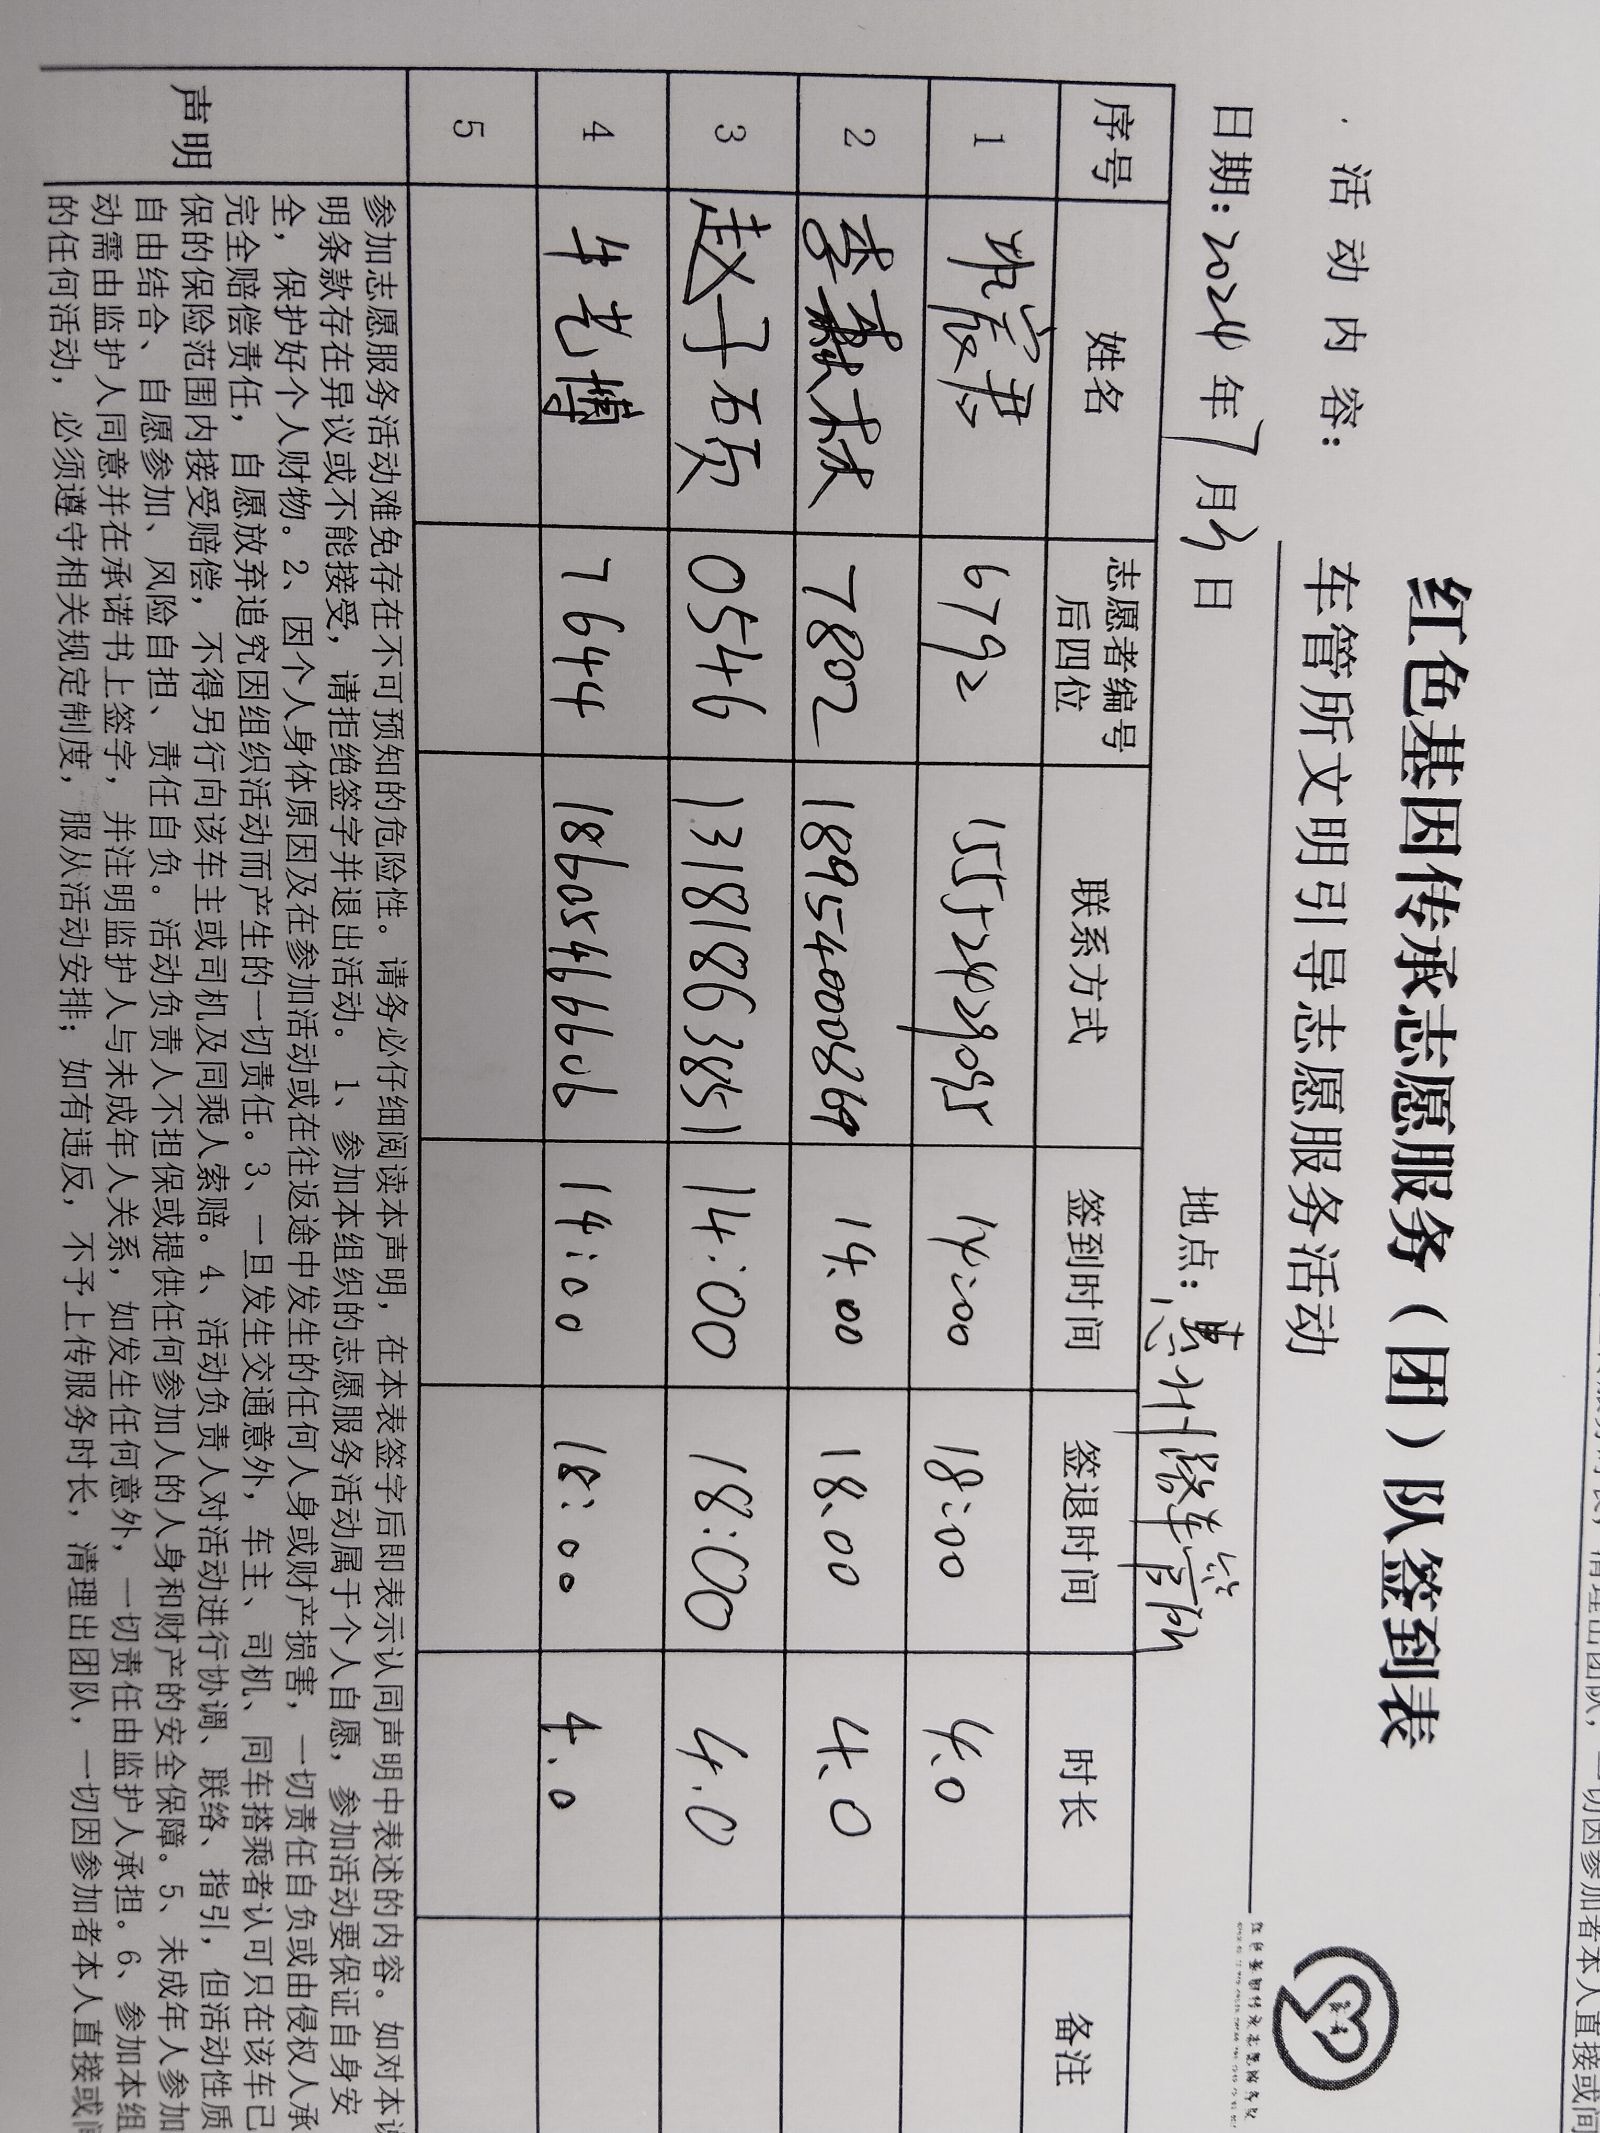 红色基因传承志愿服务（团）队签到表
活动内容： 车管所文明引导志愿服务活动
日期：2024年7月3日 地点：惠州 车管所
序号 姓名 志愿者编号后四位 联系方式 签到时间 签退时间 时长 备注
1 6792 1552429095 14:00 18:00 4.0
2 李 林 7802 18954000869 14.00 18.00 4.0
3 赵子硕 0546 13181863851 14:00 18:00 4.0
4 牛艺博 7644 18605466606 14:00 18:00 4.0
5
声明
参加志愿服务活动难免存在不可预知的危险性。请务必仔细阅读本声明，在本表签字后即表示认同声明中表述的内容。如对本
明条款存在异议或不能接受，请拒绝签字并退出活动。 1、参加本组织的志愿服务活动属于个人自愿，参加活动要保证自身安
全，保护好个人财物。2、因个人身体原因及在参加活动或在往返途中发生的任何人身或财产损害，一切责任自负或由侵权人承
完全赔偿责任，自愿放弃追究因组织活动而产生的一切责任。3、一旦发生交通意外，车主、司机、同车搭乘者认可只在该车已
保的保险范围内接受赔偿，不得另行向该车主或司机及同乘人索赔。4、活动负责人对活动进行协调、联络、指引，但活动性质
自由结合、自愿参加、风险自担、责任自负。活动负责人不担保或提供任何参加人的人身和财产的安全保障。5、未成年人参加
动需由监护人同意并在承诺书上签字，并注明监护人与未成年人关系，如发生任何意外，一切责任由监护人承担。6、参加本组
的任何活动，必须遵守相关规定制度，服从活动安排；如有违反，不予上传服务时长，清理出团队，一切因参加者本人直接或间